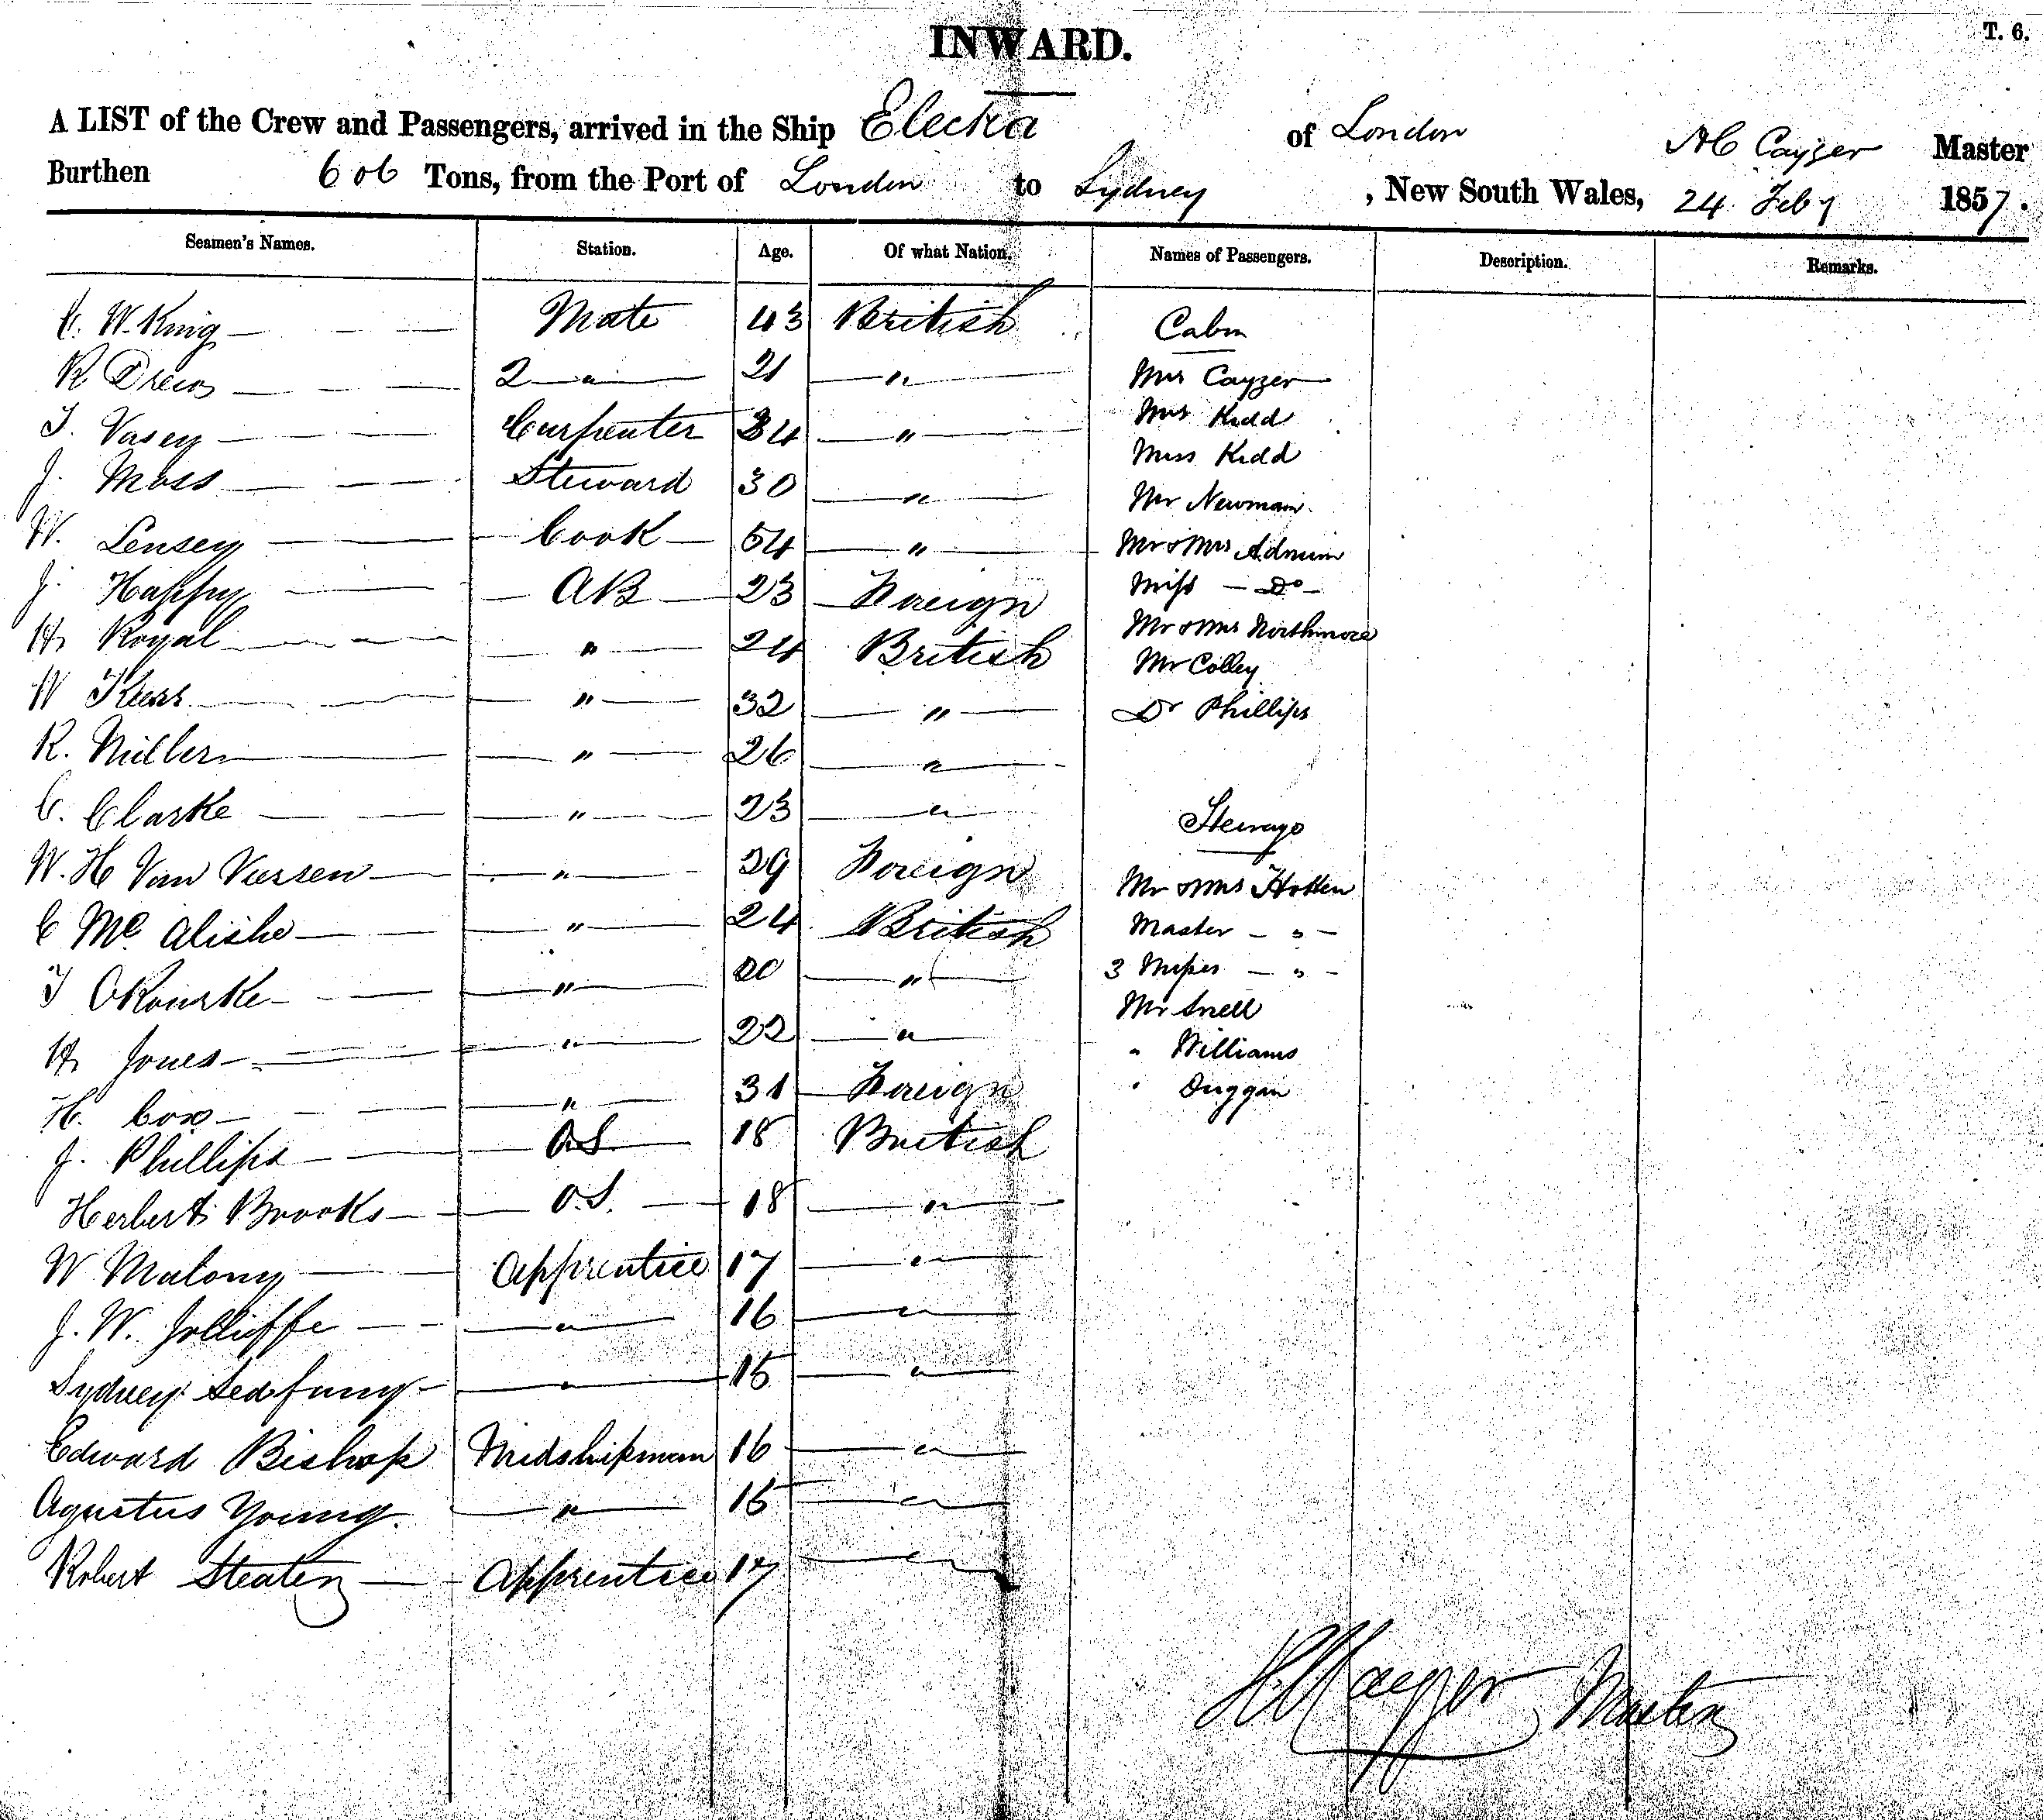 INWARD.
T. 6.
A LIST of the Crew and Passengers, arrived in the Ship Electra of London Cayzer Master
Burthen 606 Tons, from the Port of London to Sydney, New South Wales, 24 Feby 1857.
Seamen's Names. Station. Age. Of what Nation. Names of Passengers. Description. Remarks.
C. W. King — Mate 43 British Cabin
R Drew — 2 — " — 21 — " — Mrs Cayzer
T. Vasey — Carpenter 34 — " — Mrs Kidd
J. Moss — Steward 30 — " — Miss Kidd
W. Lensey — Cook — 54 — " — Mr Newman
J. Happy — AB — 23 Foreign Mr & Mrs
H Royal — " — 24 British Miss — Do —
W — " — 32 — " — Mr & Mrs Northmore
R. Miller — " — 26 — " — Mr Colley
C. Clarke — " — 23 — " — Dr Phillips
W. H Van — " — 29 Foreign Steerage
C Mc — " — 24 British Mr & Mrs Hotten
T ORourke — " — 20 — " — Master — " —
H Jones — " — 22 — " — 3 Misses — " —
H. Cox — " — 31 Foreign Mr Snell
J. Phillips — O.S. — 18 British " Williams
Herbert Brooks — O.S. — 18 — " — " Duggan
W Malony — Apprentice 17 — " —
J. W. Jolliffe — " — 16 — " —
Sydney — " — 15 — " —
Edward Bishop Midshipman 16 — " —
Agustus Young. — " — 15 — " —
Robert — Apprentice 17 — " —
Cayzer Master